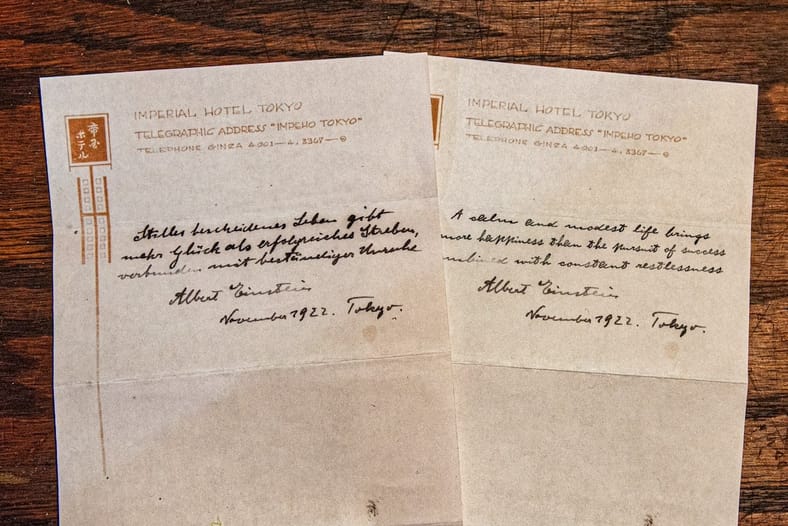 帝国
ホテル
IMPERIAL HOTEL TOKYO
TELEGRAPHIC ADDRESS "IMPEHO TOKYO"
TELEPHONE GINZA 4001—4, 3367—9
Stilles bescheidenes Leben gibt
mehr Glück als erfolgreiches Streben,
verbunden mit beständiger Unruhe
Albert Einstein
November 1922. Tokyo.
IMPERIAL HOTEL TOKYO
TELEGRAPHIC ADDRESS "IMPEHO TOKYO"
TELEPHONE GINZA 4001—4, 3367—9
A calm and modest life brings
more happiness than the pursuit of success
combined with constant restlessness
Albert Einstein
November 1922. Tokyo.